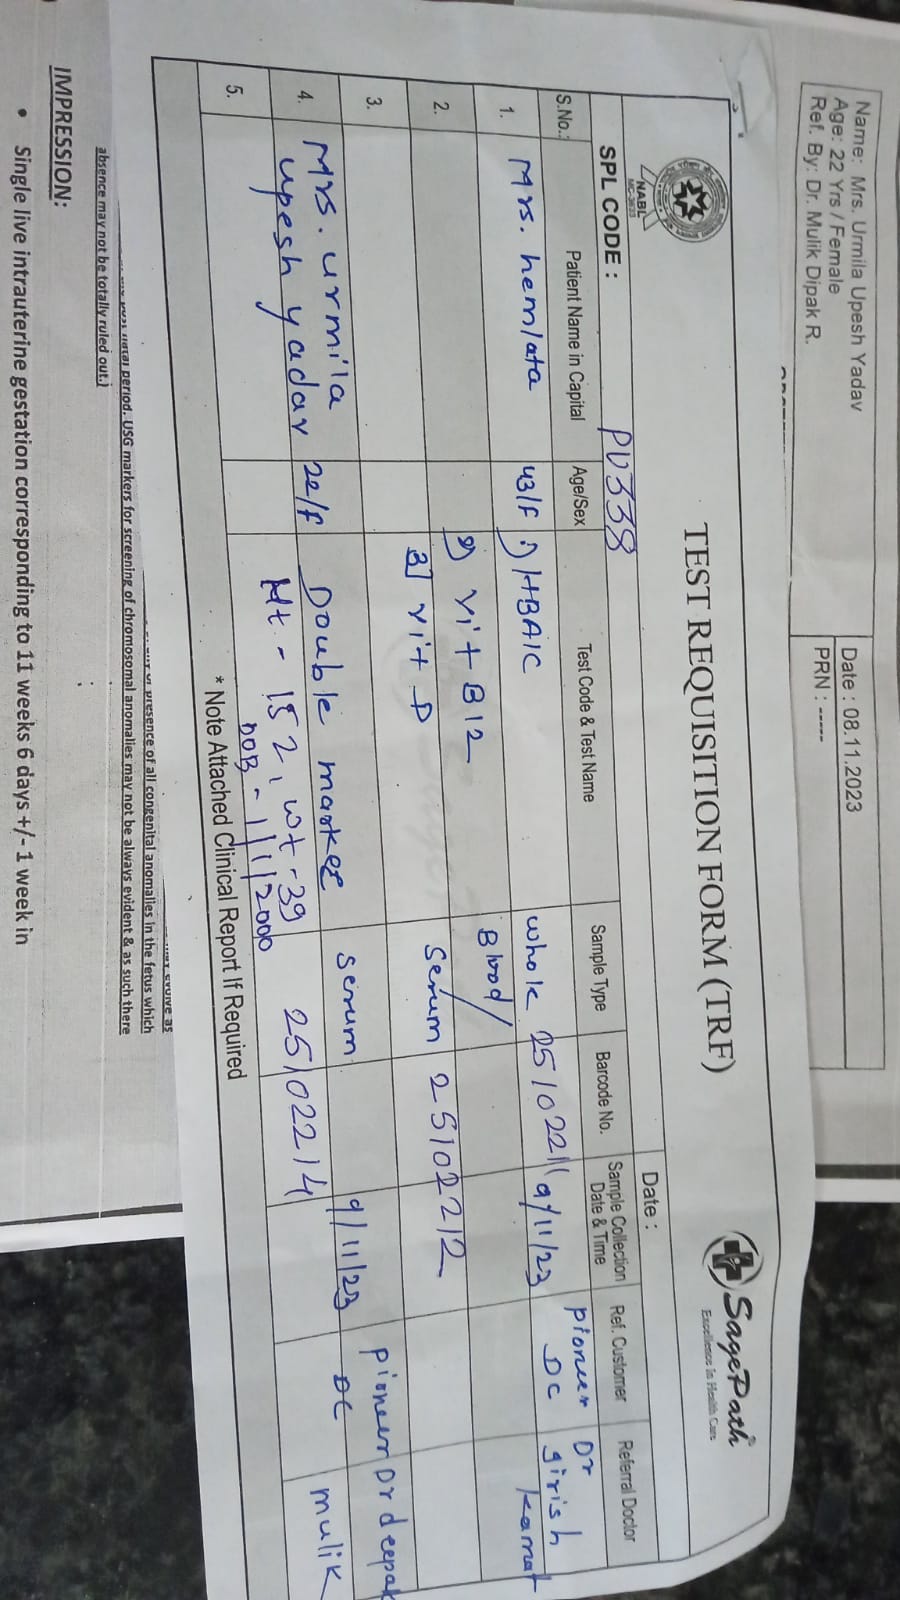 Name: Mrs. Urmila Upesh Yadav
Age: 22 Yrs / Female
Ref. By: Dr. Mulik Dipak R.
Date : 08.11.2023
PRN : -----
NABL
TEST REQUISITION FORM (TRF)
SagePath
Excellence in Health Care
SPL CODE : PU338
Date :
S.No.: Patient Name in Capital Age/Sex Test Code & Test Name Sample Type Barcode No. Sample Collection Date & Time Ref. Customer Referral Doctor
1. Mrs. hemlata 43/F 1) HBA1C whole Blood/ 25102211 9/11/23 pioneer DC Dr girish kamat
2. 2) vit B12
3] vit D Serum 25102212
3.
4. Mrs. urmila upesh yadav 22/f Double marker serum 25102214 9/11/23 pioneer DC Dr deepak mulik
Ht - 152, wt - 39
DOB - 1/1/2000
5.
* Note Attached Clinical Report If Required
presence of all congenital anomalies in the fetus which
period. USG markers for screening of chromosomal anomalies may not be always evident & as such there
absence may not be totally ruled out.)
IMPRESSION:
• Single live intrauterine gestation corresponding to 11 weeks 6 days +/- 1 week in